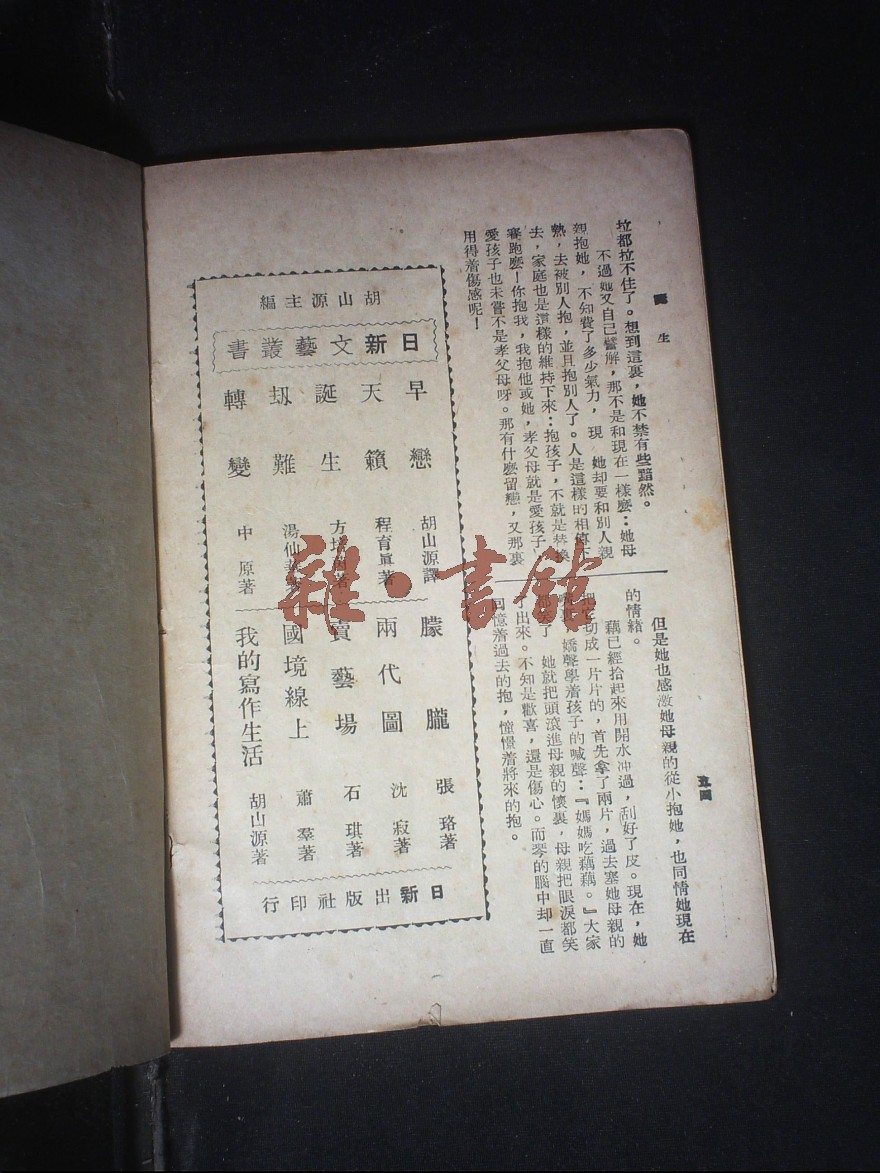 誕生
拉都拉不住了。想到這裏，她不禁有些黯然。
不過她又自己譬解，那不是和現在一樣麼：她母
親抱她，不知費了多少氣力，現 她却要和別人親
熱，去被別人抱，並且抱別人了。人是這樣的相
去，家庭也是這樣的維持下來：抱孩子，不就是替換
賽跑麽！你抱我，我抱他或她，孝父母就是愛孩子，
愛孩子也未嘗不是孝父母呀。那有什麼留戀，又那裏
用得着傷感呢！
但是她也感激她母親的從小抱她，也同情她現在
的情緒。
藕已經拾起來用開水冲過，刮好了皮。現在，她
切成一片片的，首先拿了兩片，過去塞她母親的
嬌聲學着孩子的喊聲：『媽媽吃藕藕。』大家
她就把頭滾進母親的懷裏，母親把眼淚都笑
了出來。不知是歡喜，還是傷心。而琴的腦中却一直
回憶着過去的抱，憧憬着將來的抱。
五四
胡山源主編
日新文藝叢書
早戀 胡山源譯
天籟 程育眞著
誕生 方
劫難 湯仙華
轉變 中原著
朦朧 張珞著
兩代圖 沈寂著
賣藝場 石琪著
國境線上 蕭羣著
我的寫作生活 胡山源著
日新出版社印行
雜·書館